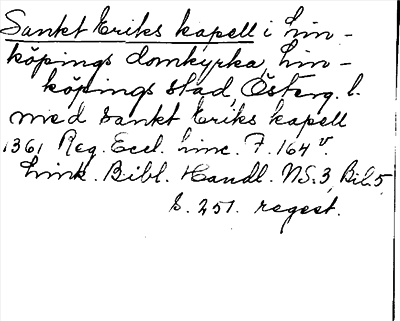 Sankt Eriks kapell i Lin-
köpings domkyrka, Lin-
köpings stad, Österg. l.
med Sankt Eriks kapell
1361 Reg. Eccl. Linc. F. 164 v.
Link. Bibl. Handl. NS. 3, Bil. 5,
s. 251. regest.